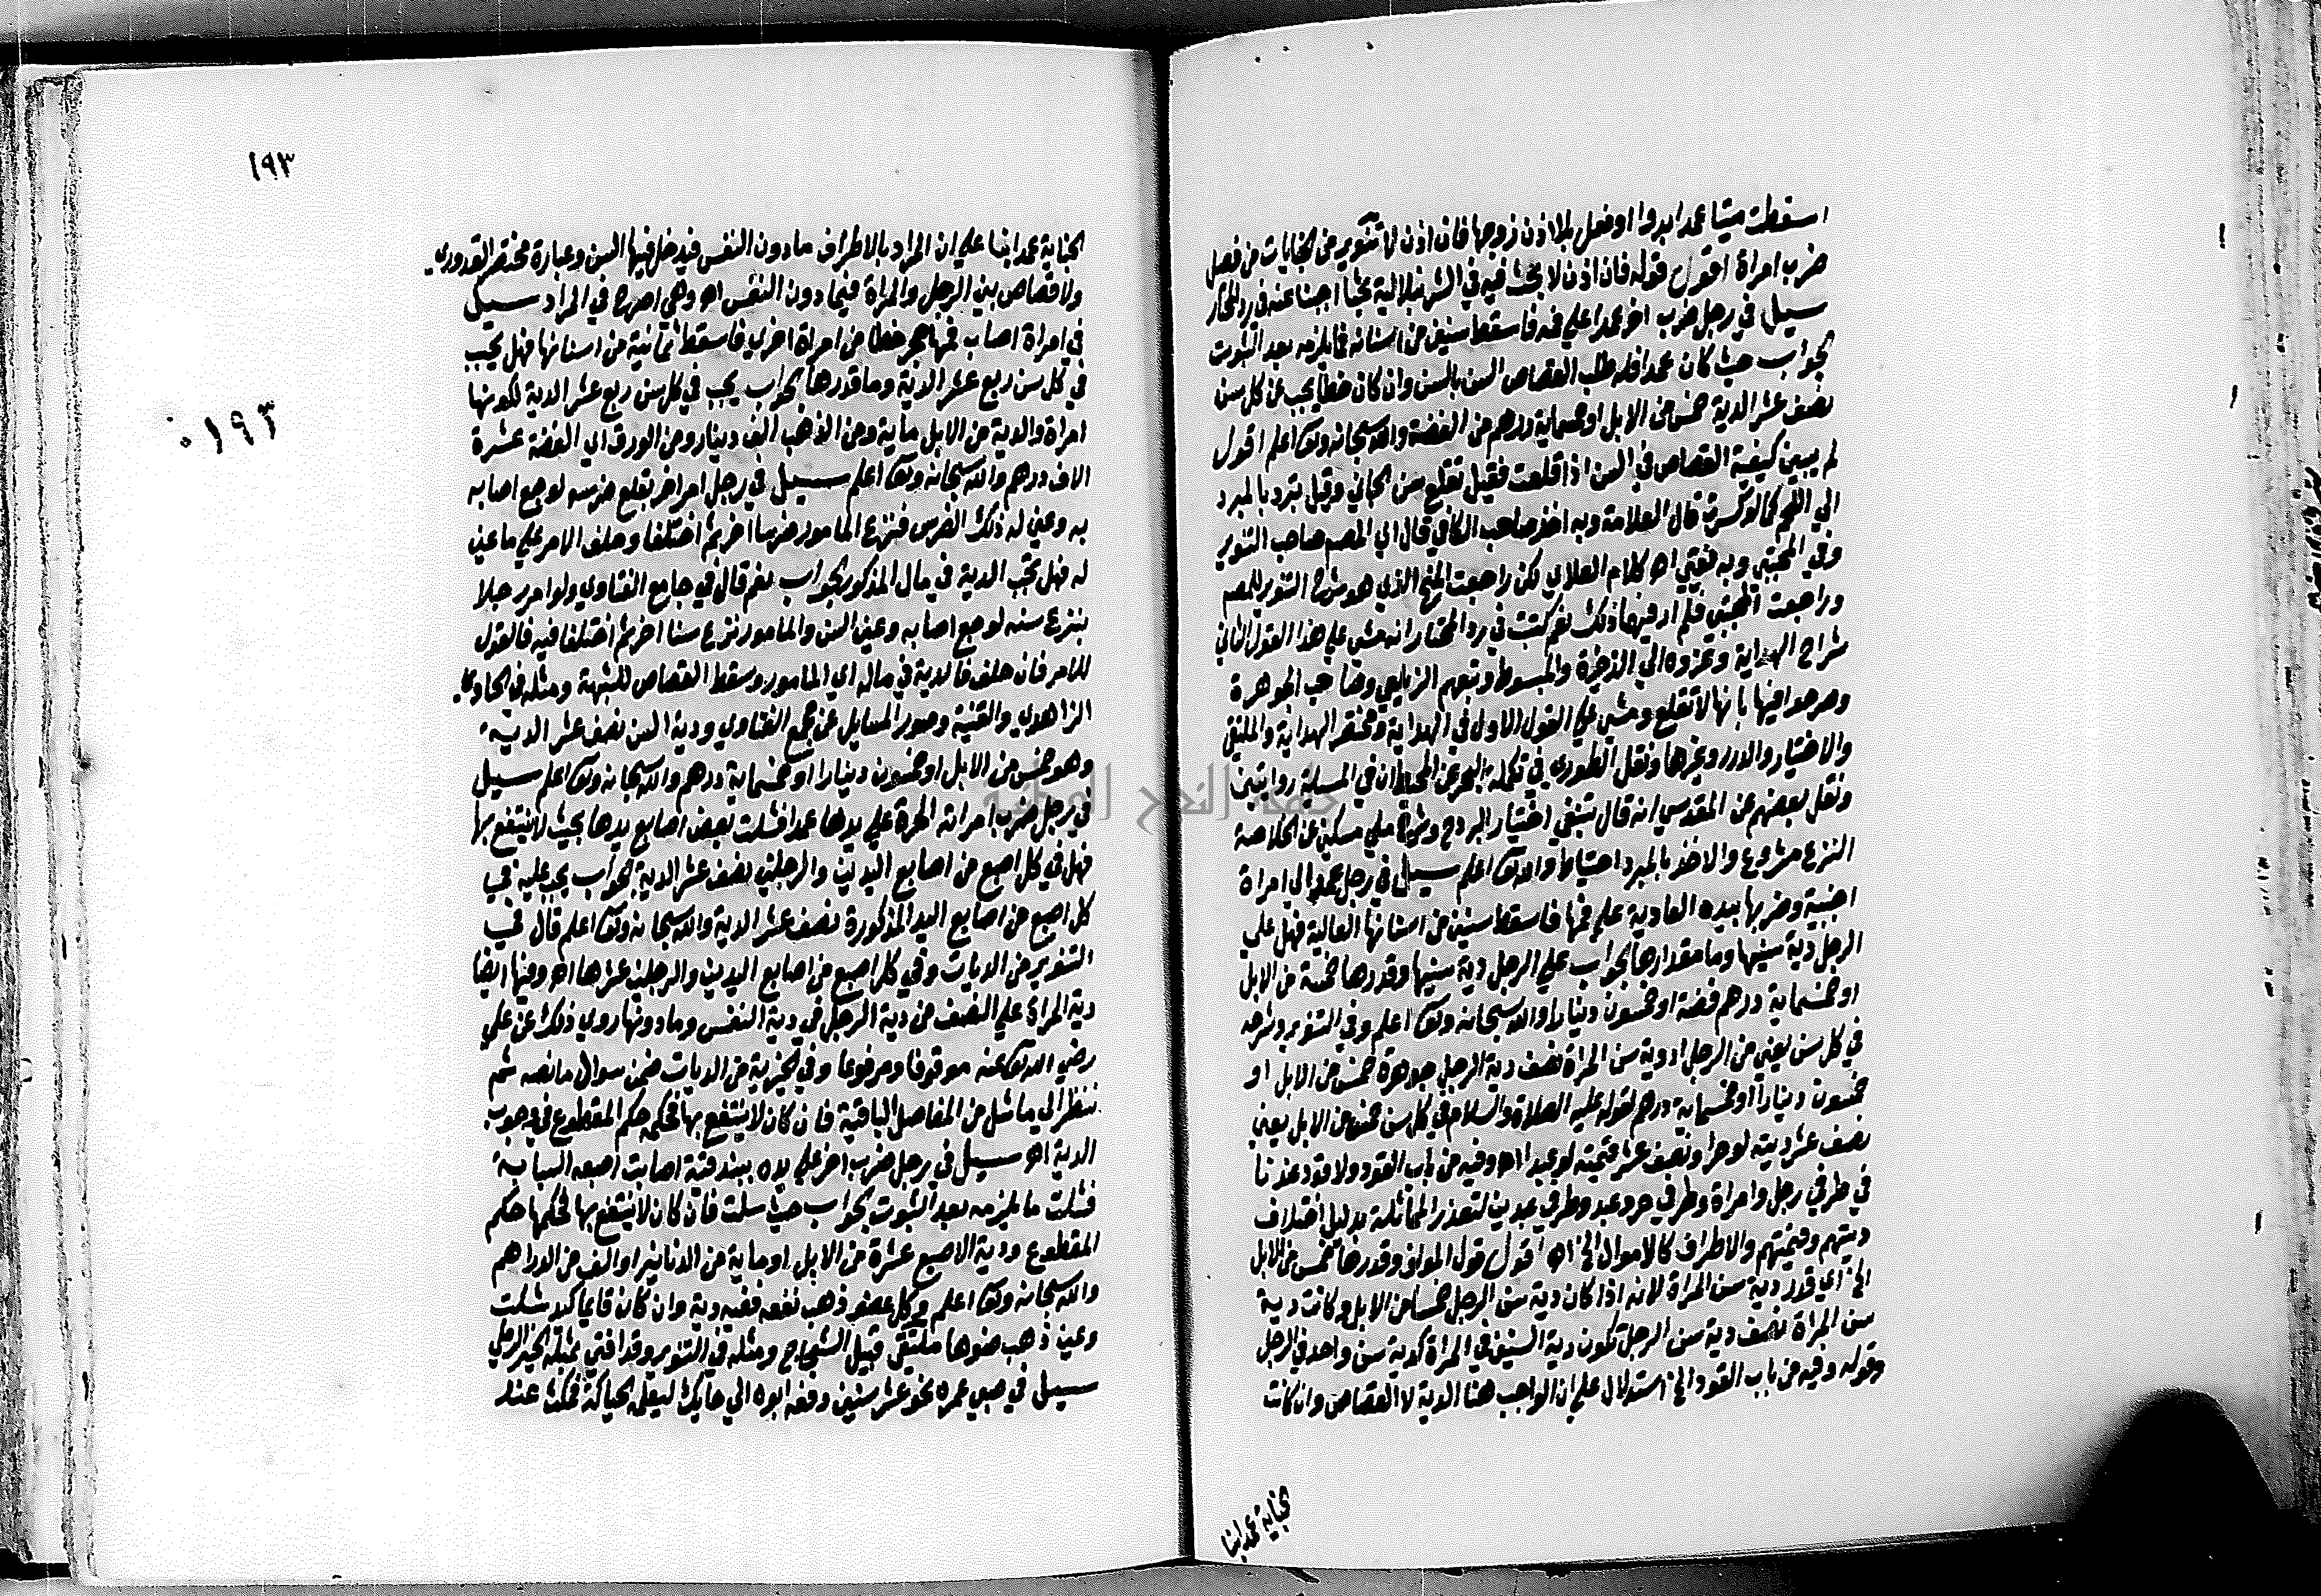 اسقطت ميتا عمدا بدوا او فعل بلا اذن زوجها فان اذن لا تنوير من الجنايات من فصل
ضرب امراة اقول قوله فان اذن لا بحث فيه في الشرنبلالية بحثا اجبنا عنه في رد المحتار
سيل في رجل ضرب اخر عمدا على فمه فاسقط سنين من اسنانه فما يلزمه بعد الثبوت
الجواب حيث كان عمدا فله طلب القصاص السن بالسن وان كان خطا يجب عن كل سن
نصف عشر الدية خمس من الابل او خمسماية درهم من الفضة والله سبحانه وتعا اعلم اقول
لم يبين كيفية القصاص في السن اذا قلعت فقيل تقلع سن الجاني وقيل تبرد بالمبرد
الى اللحم كما لو كسرت قال العلامة وبه اخذ صاحب الكافي قال اي المصم صاحب التنوير
وفي المجتبى وبه نفتي اه كلام العلاي لكن راجعت المنح الذي هو شرح التنوير للمصم
وراجعت المجتبى فلم ار فيهما ذلك نعم كتبت في رد المحتار انه مشى على هذا القول الثاني
شراح الهداية وعزوه الى الذخيرة والمبسوط وتبعهم الزيلعي وصاحب الجوهرة
وصرحوا فيها بانها لا تقلع ومشى على القول الاول في الهداية ومختصر الهداية والملتقى
والاختيار والدرر وغيرها ونقل الطوري في تكملة البحر عن المحيط ان في المسلة روايتين
ونقل بعضهم عن المقدسي انه قال ينبغي اختيار البرد وشرح منلا مسكين عن الخلاصة
النزع مشروع والاخذ بالمبرد احتياط والله تعا اعلم سيل في رجل عمد الى امراة
اجنبية وضربها بيده العادية على فمها فاسقط سنين من اسنانها العالية فهل على
الرجل دية سنيها وما مقدارها الجواب على الرجل دية سنيها وقدرها خمسة من الابل
او خمسماية درهم فضة او خمسون دينارا والله سبحانه وتعا اعلم وفي التنوير وشرحه
في كل سن يعني من الرجل اذ دية سن المراة نصف دية الرجل جوهرة خمس من الابل او
خمسون دينارا او خمسماية درهم لقوله عليه الصلاة والسلام في كل سن خمس من الابل يعني
نصف عشر ديته لو حرا ونصف عشر قيمته لو عبدا اه وفيه من باب القود ولا قود عندنا
في طرفي رجل وامراة وطرفي حر وعبد وطرفي عبدين لتعذر المماثلة بدليل اختلاف
ديتهم وقيمتهم والاطراف كالاموال الخ اه اقول قول المولف وقدرها خمس من الابل
الخ اي قدر دية سن المراة لانه اذا كان دية سن الرجل خمسا من الابل وكانت دية
سن المراة نصف دية سن الرجل تكون دية السنين في المراة كدية سن واحد في الرجل
وقوله وفيه من باب القود الخ استدلال على ان الواجب هنا الدية لا القصاص وان كانت
الجناية عمدا بنا
١٩٣
١٩٣
الجناية عمدا بنا على ان المراد بالاطراف ما دون النفس فيدخل فيها السن وعبارة مختصر القدوري
ولا قصاص بين الرجل والمراة فيما دون النفس اه وهي اصرح في المراد سيل
في امراة اصاب فمها حجر خطا من امراة اخرى فاسقط ثمانية من اسنانها فهل يجب
في كل سن ربع عشر الدية وما قدرها الجواب يجب في كل سن ربع عشر الدية لكونها
امراة والدية من الابل ماية ومن الذهب الف دينار ومن الورق اي الفضة عشرة
الاف درهم والله سبحانه وتعا اعلم سيل في رجل امر اخر بقلع ضرسه لوجع اصابه
به وعين له ذلك الضرس فنزع المامور ضرسا اخر ثم اختلفا وحلف الامر على ما عين
له فهل تجب الدية في مال المذكور الجواب نعم قال في جامع الفتاوى ولو امر رجلا
بنزع سنه لوجع اصابه وعين السن والمامور نزع سنا اخر ثم اختلفا فيه فالقول
للامر فان حلف فالدية في ماله اي المامور وسقط القصاص للشبهة ومثله في الحاوي
الزاهدي والقنية وصور المسايل عن مجمع الفتاوي ودية السن نصف عشر الدية
وهو خمس من الابل او خمسون دينارا او خمسماية درهم والله سبحانه وتعا اعلم سيل
في رجل ضرب امراته الحرة على يدها عمدا فشلت بعض اصابع يدها بحيث لا ينتفع بها
فهل في كل اصبع من اصابع اليدين والرجلين نصف عشر الدية الجواب يجب عليه في
كل اصبع من اصابع اليد المذكورة نصف عشر الدية والله سبحانه وتعا اعلم قال في
التنوير من الديات وفي كل اصبع من اصابع اليدين والرجلين عشرها اه وفيها ايضا
دية المراة على النصف من دية الرجل في دية النفس وما دونها روي ذلك عن علي
رضي الله تعا عنه موقوفا ومرفوعا وفي الخيرية من الديات ضمن سوال ما نصه ثم
ننظر الى ما شل من المفاصل الباقية فان كان لا ينتفع بها فحكمه حكم المقطوع في وجوب
الدية اه سيل في رجل ضرب اخر على يده ببندقية اصابت اصبعه السبابة
فشلت ما يلزمه بعد الثبوت الجواب حيث شلت فان كان لا ينتفع بها فحكمها حكم
المقطوع ودية الاصبع عشرة من الابل او ماية من الدنانير او الف من الدراهم
والله سبحانه وتعا اعلم وكل عضو ذهب نفعه ففيه دية وان كان قايما كيد شلت
وعين ذهب ضوها ملتقى قبيل الشجاج ومثله في التنوير وقد افتى بمثله الخير الرملي
سيل في صبي عمره نحو عشر سنين دفعه ابوه الى حايك ليعلمه الحياكة فمكث عند